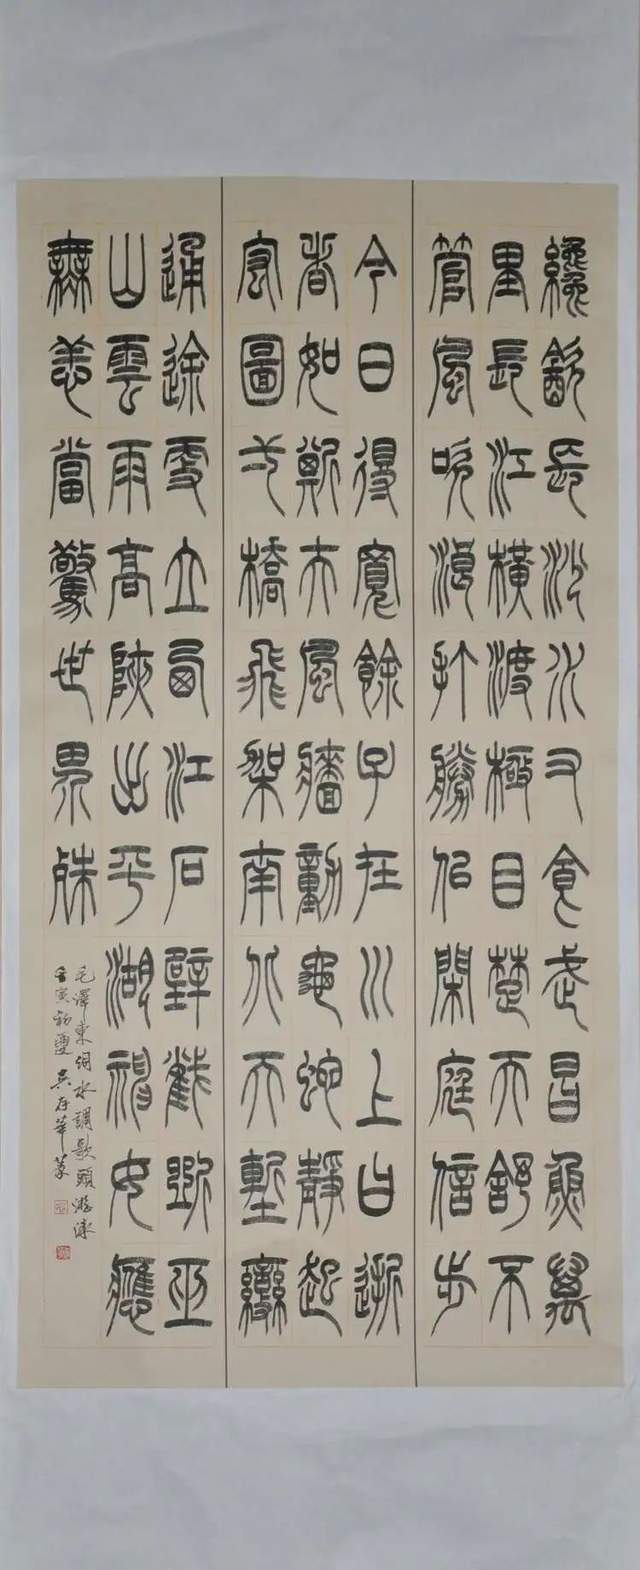 纔飲長沙水又食武昌魚萬
里長江橫渡極目楚天舒不
管風吹浪打勝似閑庭信步
今日得寬餘子在川上曰逝
者如斯夫風檣動龜蛇靜起
宏圖弌橋飛架南北天塹變
通途更立西江石壁截斷巫
山雲雨高峽出平湖神女應
無恙當驚世界殊
毛澤東詞水調歌頭游泳
壬寅初夏吳存華篆